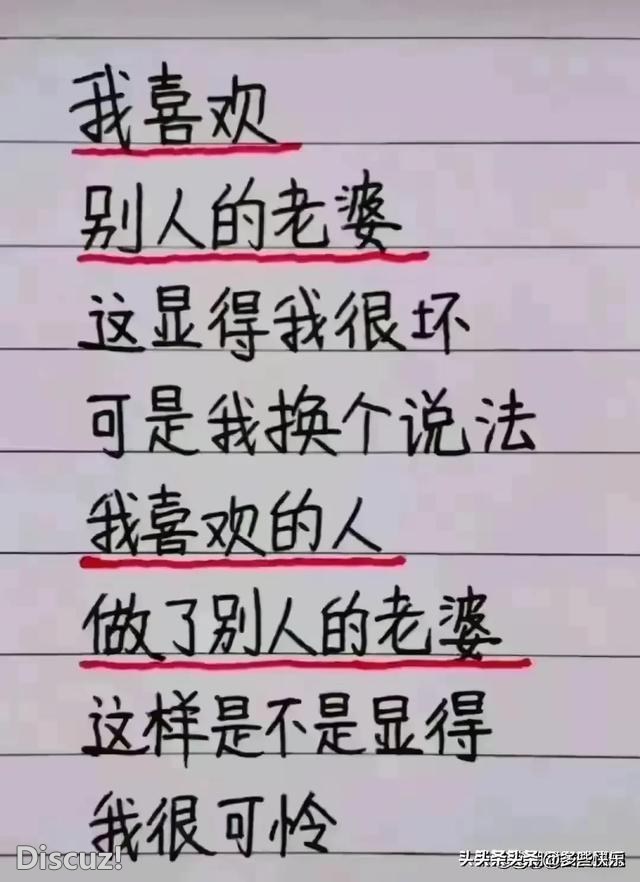 我喜欢
别人的老婆
这显得我很坏
可是我换个说法
我喜欢的人
做了别人的老婆
这样是不是显得
我很可怜
Discuz!